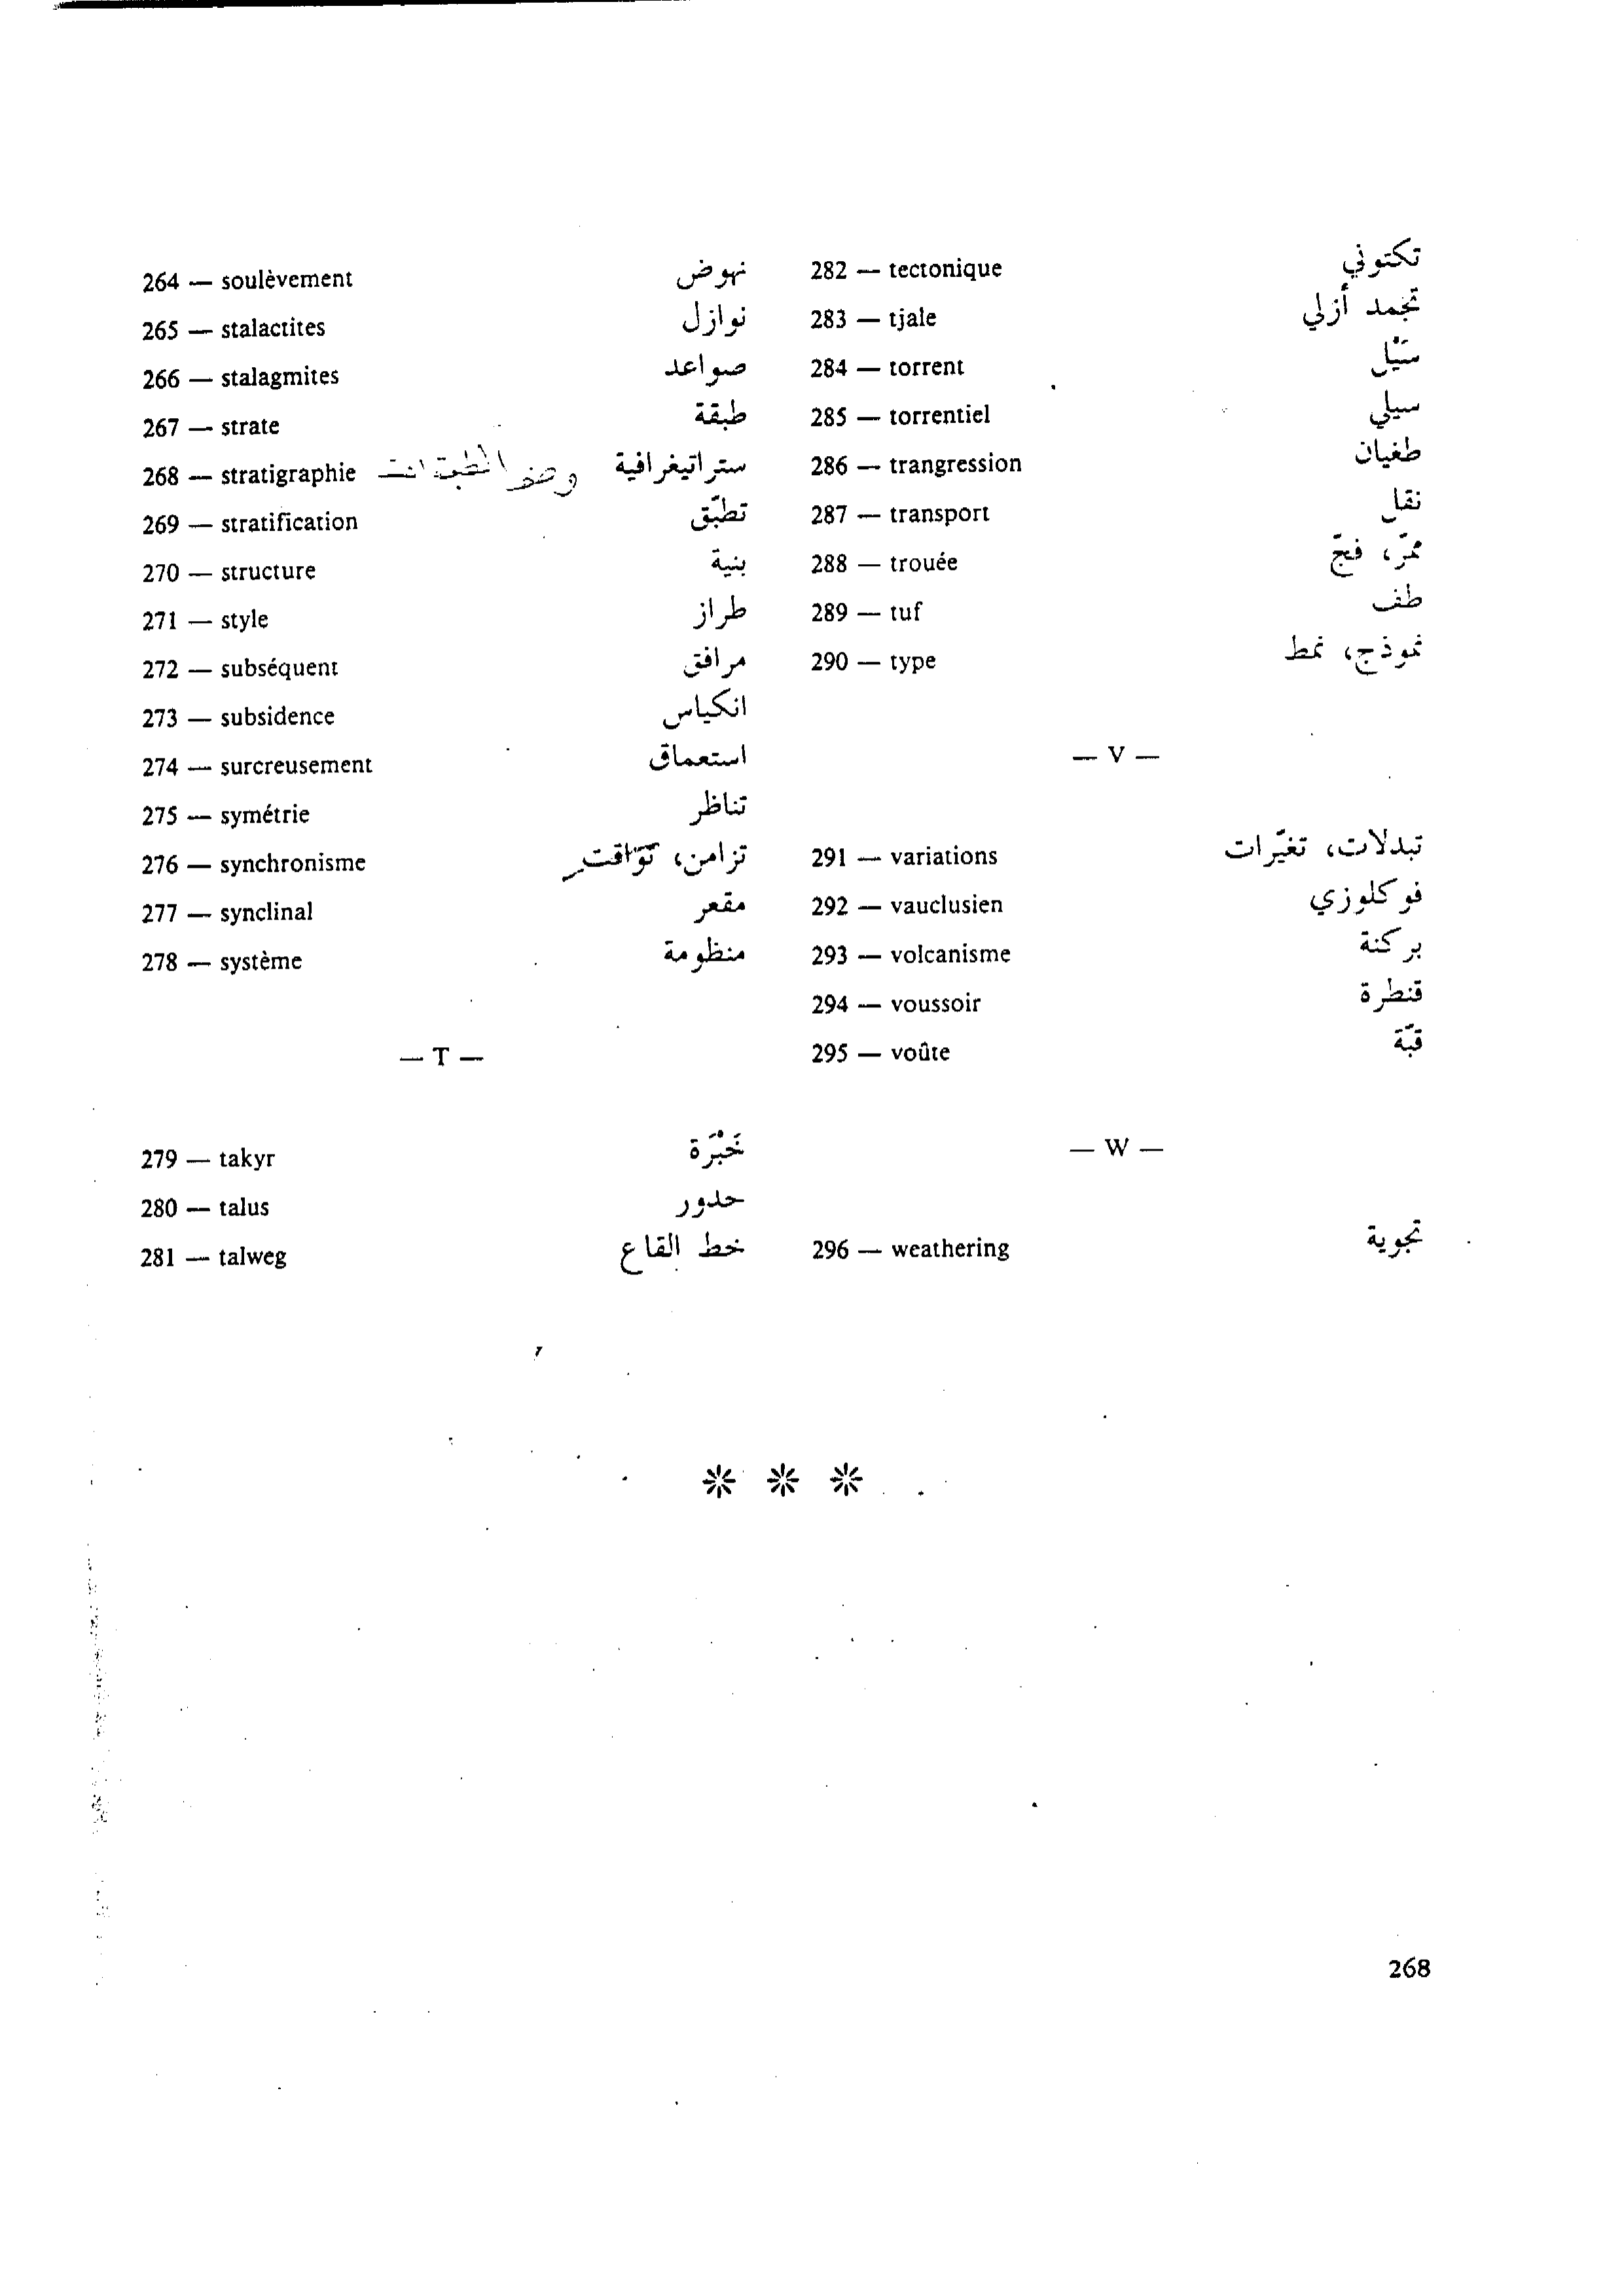 264 — soulèvement نهوض
265 — stalactites نوازل
266 — stalagmites صواعد
267 — strate طبقة
268 — stratigraphie ستراتيغرافية وصف الطبقات
269 — stratification تطبّق
270 — structure بنية
271 — style طراز
272 — subséquent مرافق
273 — subsidence انكياس
274 — surcreusement استعماق
275 — symétrie تناظر
276 — synchronisme تزامن، تواقت
277 — synclinal مقعر
278 — système منظومة
— T —
279 — takyr خَبْرَة
280 — talus حدور
281 — talweg خط القاع
282 — tectonique تكتوني
283 — tjale تجمد أزلي
284 — torrent سَيْل
285 — torrentiel سيلي
286 — trangression طغيان
287 — transport نقل
288 — trouée ممرّ، فجّ
289 — tuf طف
290 — type نموذج، نمط
— V —
291 — variations تبدلات، تغيّرات
292 — vauclusien فوكلوزي
293 — volcanisme بركنة
294 — voussoir قنطرة
295 — voûte قبّة
— W —
296 — weathering تجوية
268